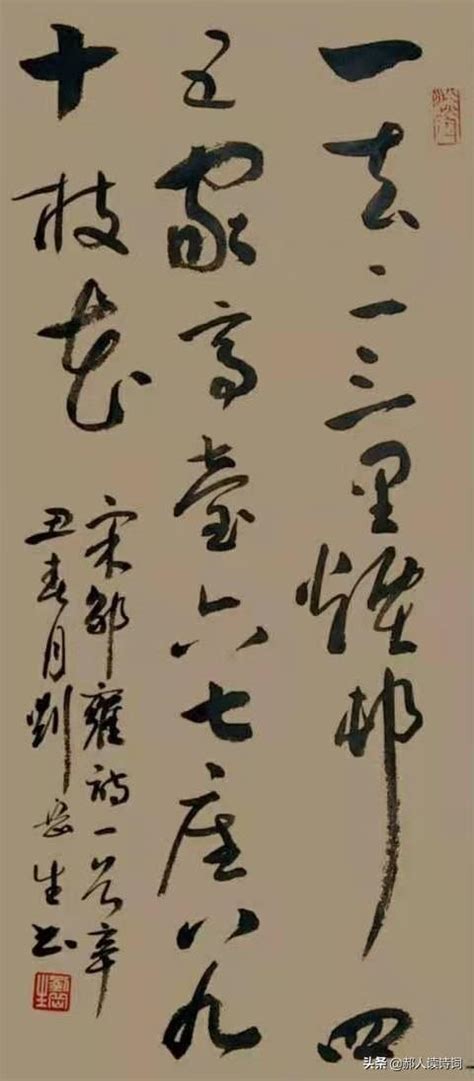 一去二三里煙邨四
五家亭臺六七座八九
十枝花
宋邵雍詩一首辛
丑春月劉岳生书
头条 @郝人读诗词